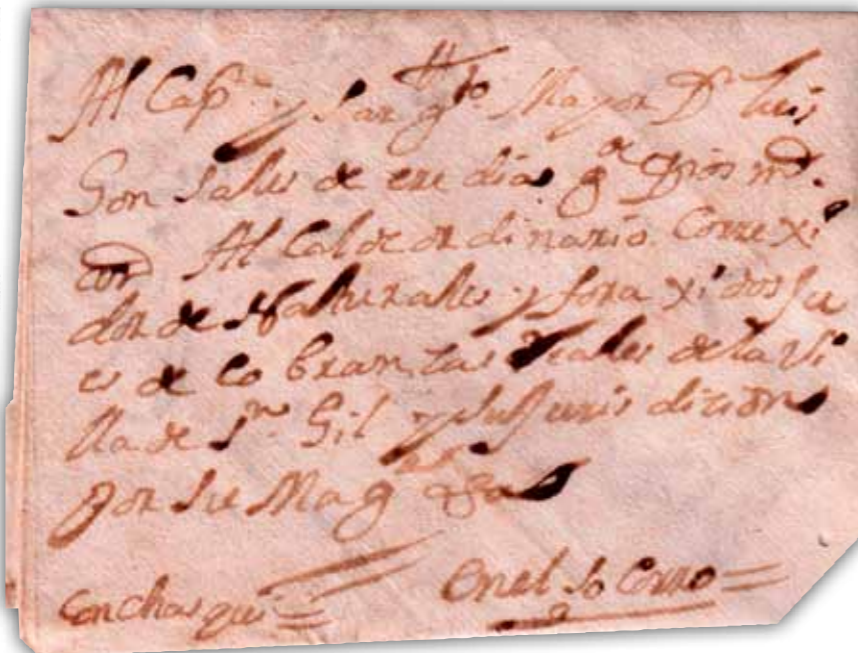 Al Capn y Sargto Mayor Dn Luis
Gonsales de ere dia ge Dios ms
as Al Calde ordinario Correxi
dor de Naturales y foraxidos Ju
es de Cobranzas Reales de la Vi
lla de Sn Gil y su Juris dicion
por su Magd
con chasqui = En el So Corro =